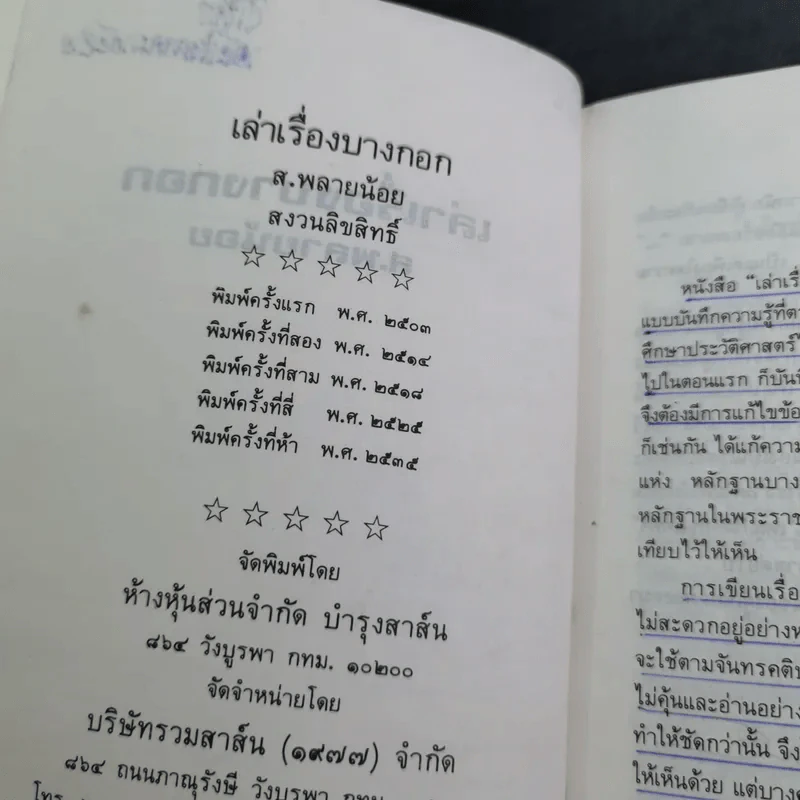 เล่าเรื่องบางกอก
ส.พลายน้อย
สงวนลิขสิทธิ์
☆ ☆ ☆ ☆ ☆
พิมพ์ครั้งแรก พ.ศ. ๒๕๐๓
พิมพ์ครั้งที่สอง พ.ศ. ๒๕๑๔
พิมพ์ครั้งที่สาม พ.ศ. ๒๕๑๘
พิมพ์ครั้งที่สี่ พ.ศ. ๒๕๒๕
พิมพ์ครั้งที่ห้า พ.ศ. ๒๕๓๕
☆ ☆ ☆ ☆ ☆
จัดพิมพ์โดย
ห้างหุ้นส่วนจำกัด บำรุงสาส์น
๘๖๔ วังบูรพา กทม. ๑๐๒๐๐
จัดจำหน่ายโดย
บริษัทรวมสาส์น (๑๙๗๗) จำกัด
๘๖๔ ถนนภาณุรังษี วังบูรพา กทม.
โทร.
หนังสือ "เล่าเรื่
แบบบันทึกความรู้ที่
ศึกษาประวัติศาสตร์
ไปในตอนแรก ก็บันทึ
จึงต้องมีการแก้ไขข้อ
ก็เช่นกัน ได้แก้ความ
แห่ง หลักฐานบาง
หลักฐานในพระราช
เทียบไว้ให้เห็น
การเขียนเรื่อ
ไม่สะดวกอยู่อย่างห
จะใช้ตามจันทรคติ
ไม่คุ้นและอ่านอย่าง
ทำให้ชัดกว่านั้น จึง
ให้เห็นด้วย แต่บาง